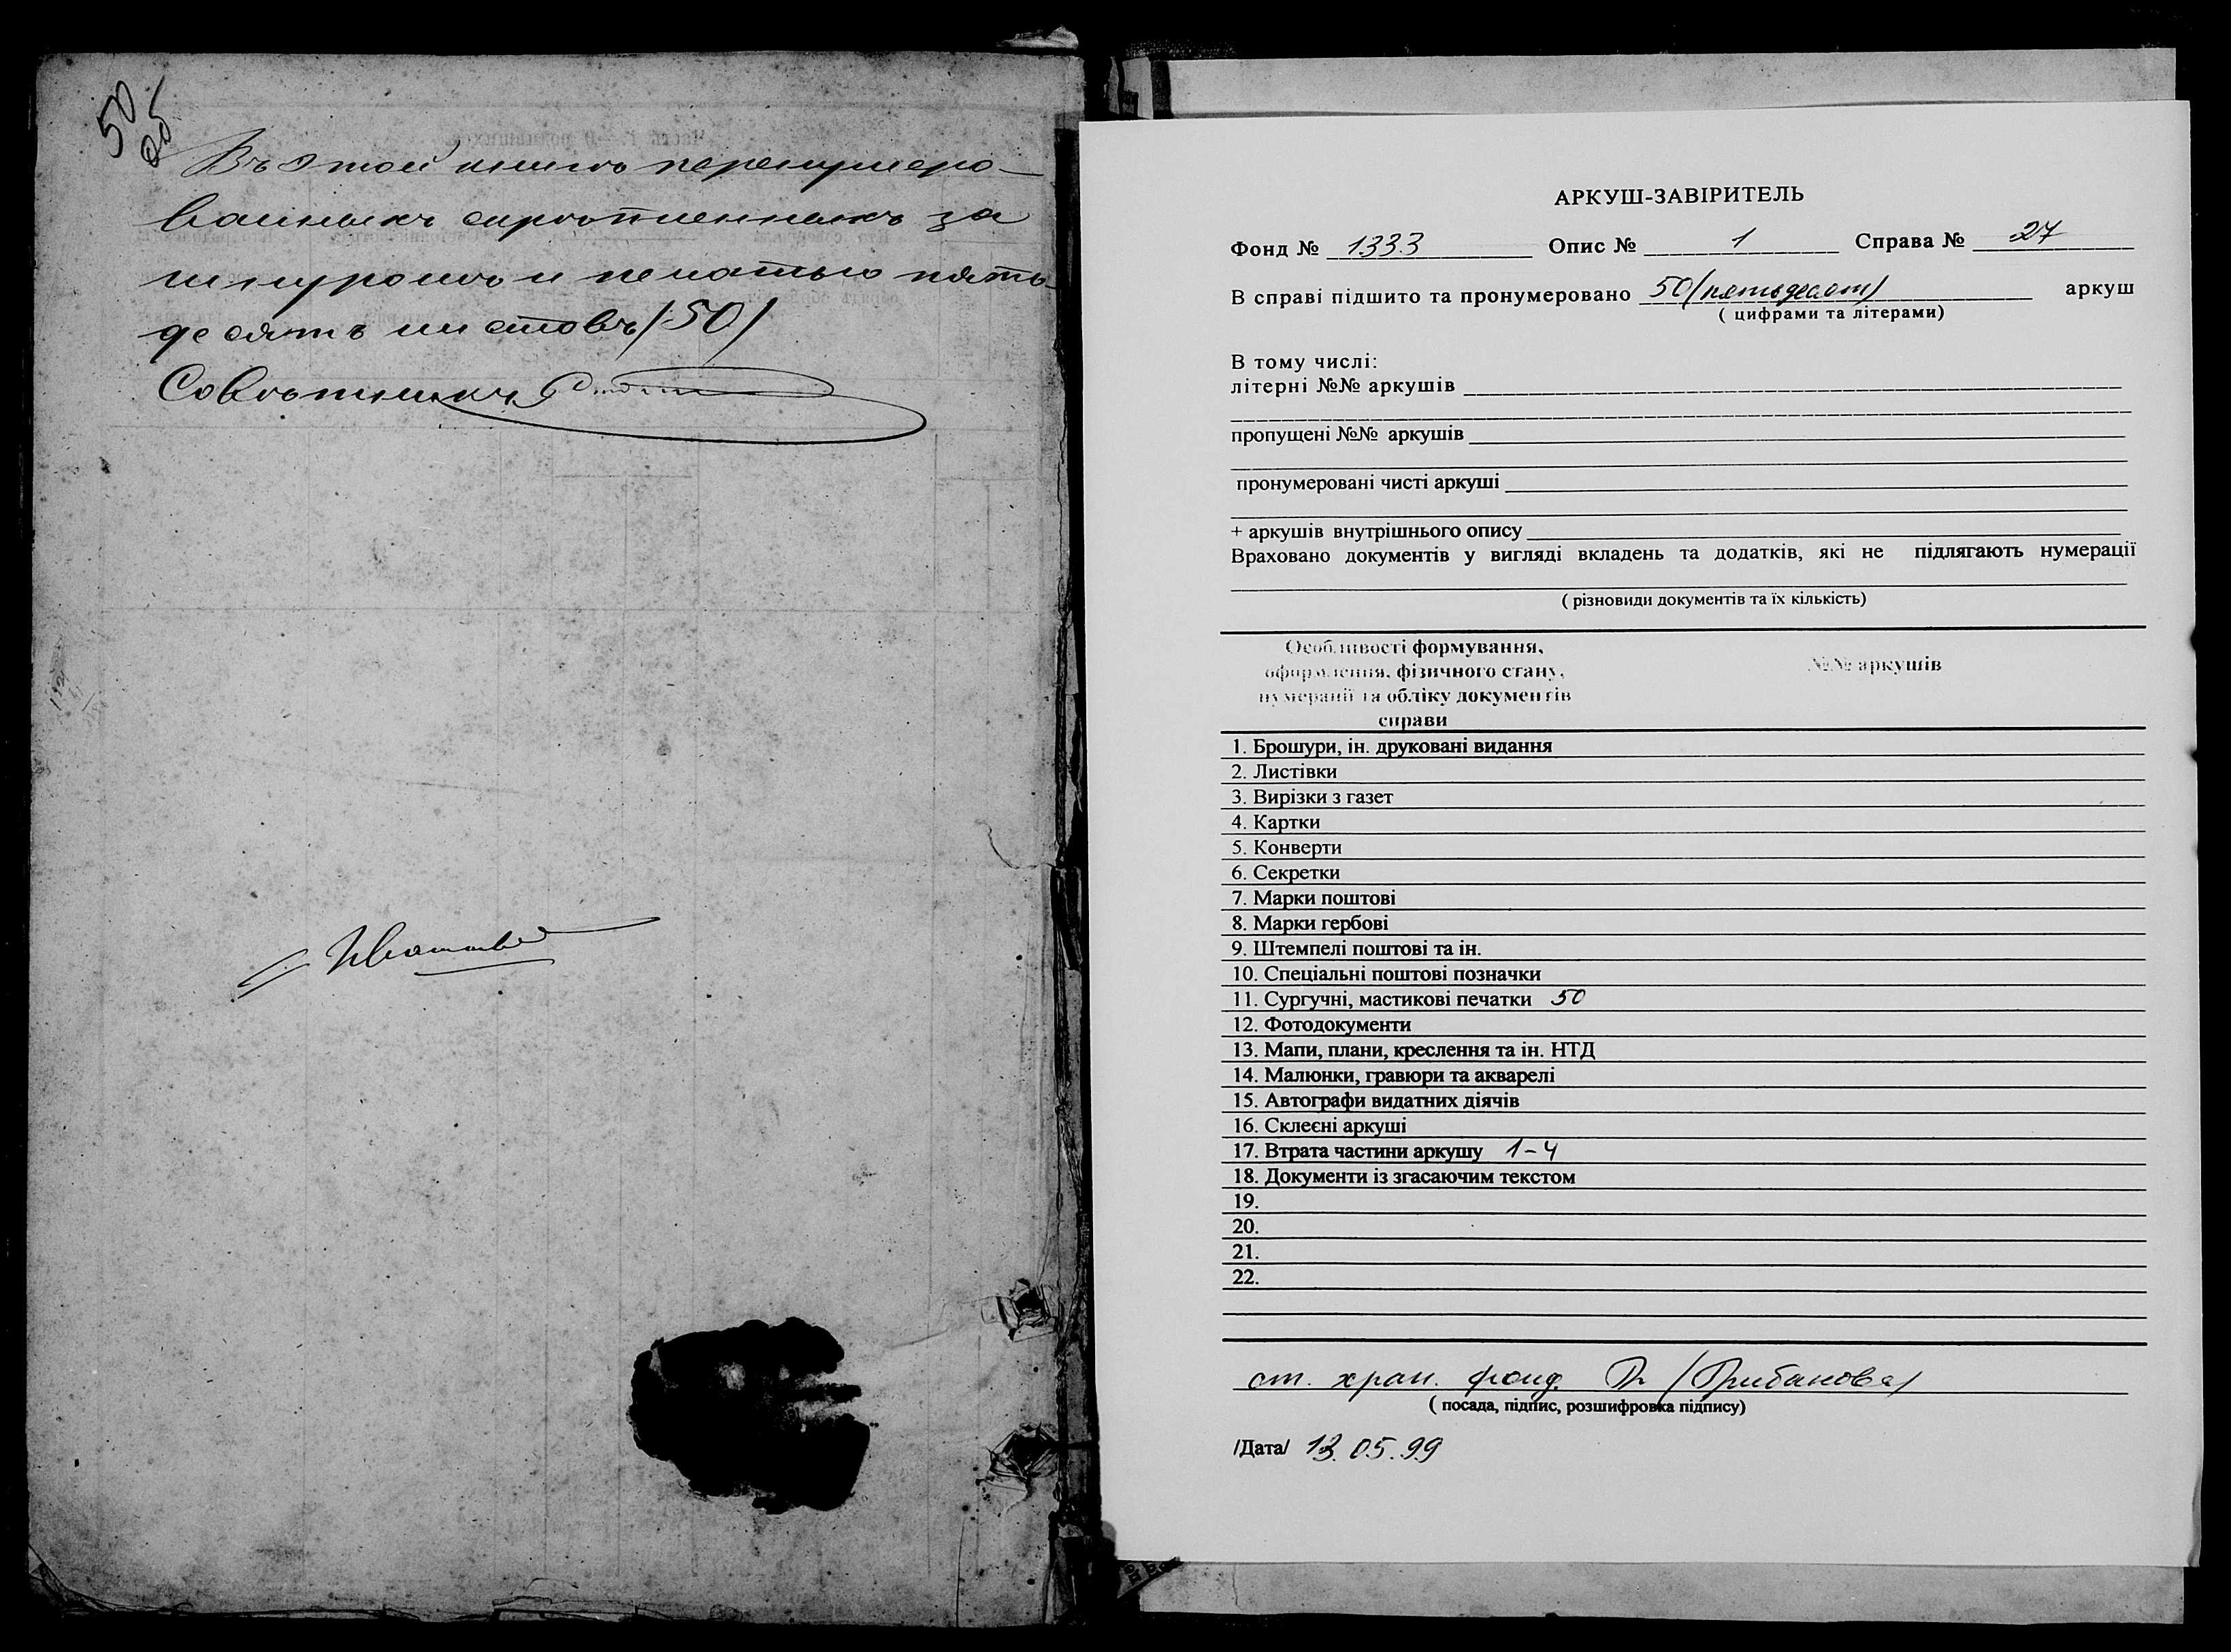 50
об
Въ этой книгѣ перенумеро-
ванныхъ скрѣпленныхъ за
шнуромъ и печатью пять-
десятъ листовъ /50/
Совѣтникъ
АРКУШ-ЗАВІРИТЕЛЬ
Фонд № 1333 Опис № 1 Справа № 27
В справі підшито та пронумеровано 50 (пятьдесят) аркуш
( цифрами та літерами)
В тому числі:
літерні №№ аркушів
пропущені №№ аркушів
пронумеровані чисті аркуші
+ аркушів внутрішнього опису
Враховано документів у вигляді вкладень та додатків, які не підлягають нумерації
( різновиди документів та їх кількість)
Особливості формування,
оформлення, фізичного стану,
нумерації та обліку документів
справи
№№ аркушів
1. Брошури, ін. друковані видання
2. Листівки
3. Вирізки з газет
4. Картки
5. Конверти
6. Секретки
7. Марки поштові
8. Марки гербові
9. Штемпелі поштові та ін.
10. Спеціальні поштові позначки
11. Сургучні, мастикові печатки 50
12. Фотодокументи
13. Мапи, плани, креслення та ін. НТД
14. Малюнки, гравюри та акварелі
15. Автографи видатних діячів
16. Склеєні аркуші
17. Втрата частини аркушу 1-4
18. Документи із згасаючим текстом
19.
20.
21.
22.
ст. хран. фонд. (Грибанова)
( посада, підпис, розшифровка підпису)
/Дата/ 13.05.99